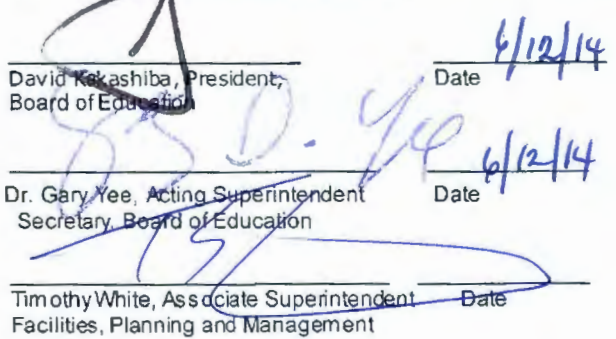 6/12/14
David Kakashiba, President, Date
Board of Education
6/12/14
Dr. Gary Yee, Acting Superintendent Date
Secretary, Board of Education
Timothy White, Associate Superintendent Date
Facilities, Planning and Management